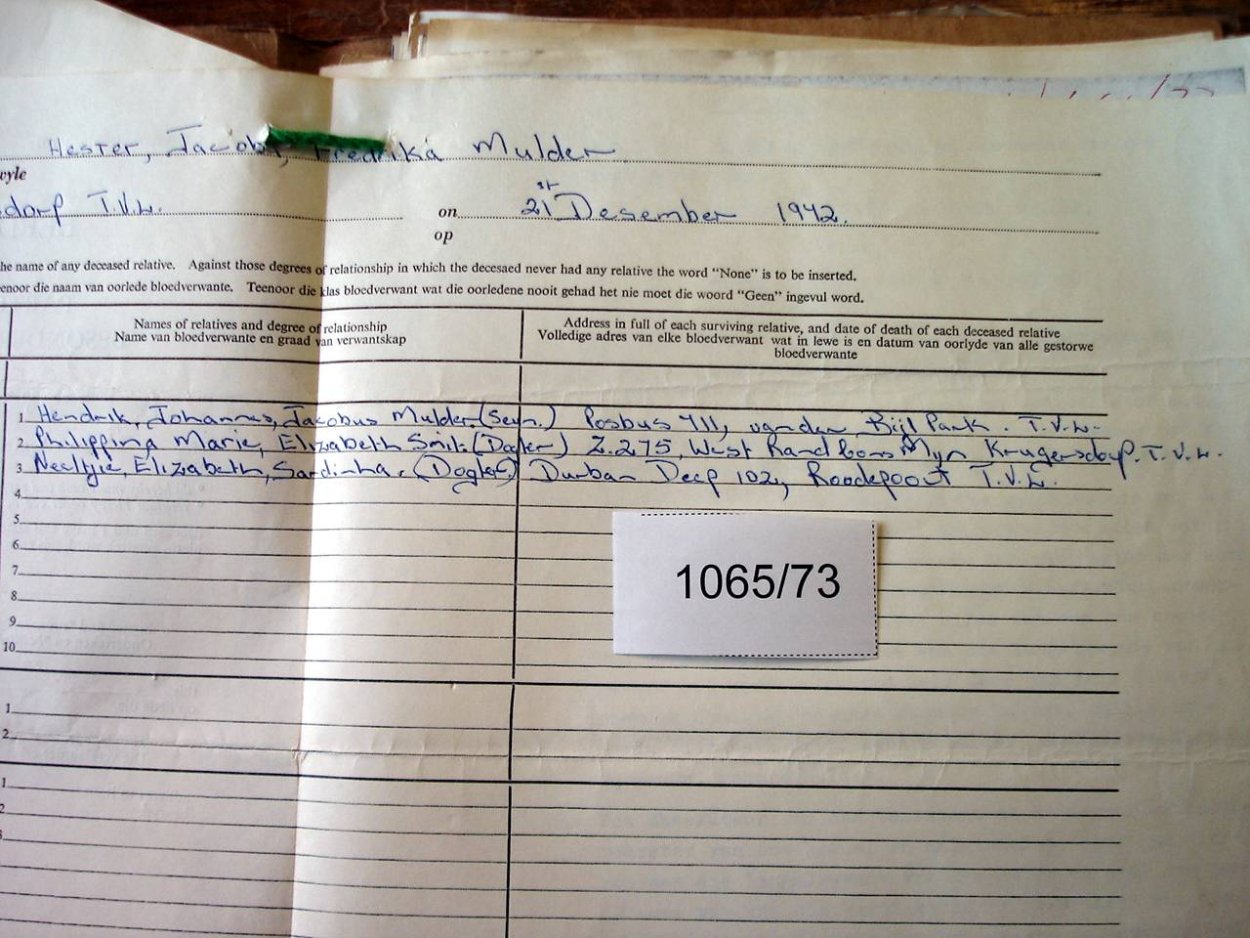 Hester, Jacoba, Fredrika Mulder
wyle
dorp T.V.L. on 21st Desember 1942.
op
he name of any deceased relative. Against those degrees of relationship in which the decesaed never had any relative the word "None" is to be inserted.
enoor die naam van oorlede bloedverwante. Teenoor die klas bloedverwant wat die oorledene nooit gehad het nie moet die woord "Geen" ingevul word.
Names of relatives and degree of relationship
Name van bloedverwante en graad van verwantskap
Address in full of each surviving relative, and date of death of each deceased relative
Volledige adres van elke bloedverwant wat in lewe is en datum van oorlyde van alle gestorwe
bloedverwante
1 Hendrik, Johannes, Jacobus Mulder (Seun.) Posbus 711, vander Bijl Park. T.V.L.
2 Philippina Maria, Elizabeth Smit. (Dogter) Z.275, West Rand Cons Myn Krugersdorp. T.V.L.
3 Neeltjie, Elizabeth, Sardinha. (Dogter) Durban Deep 102, Roodepoort T.V.L.
4
5
6
7
8
9
10
1065/73
1
2
1
2
3